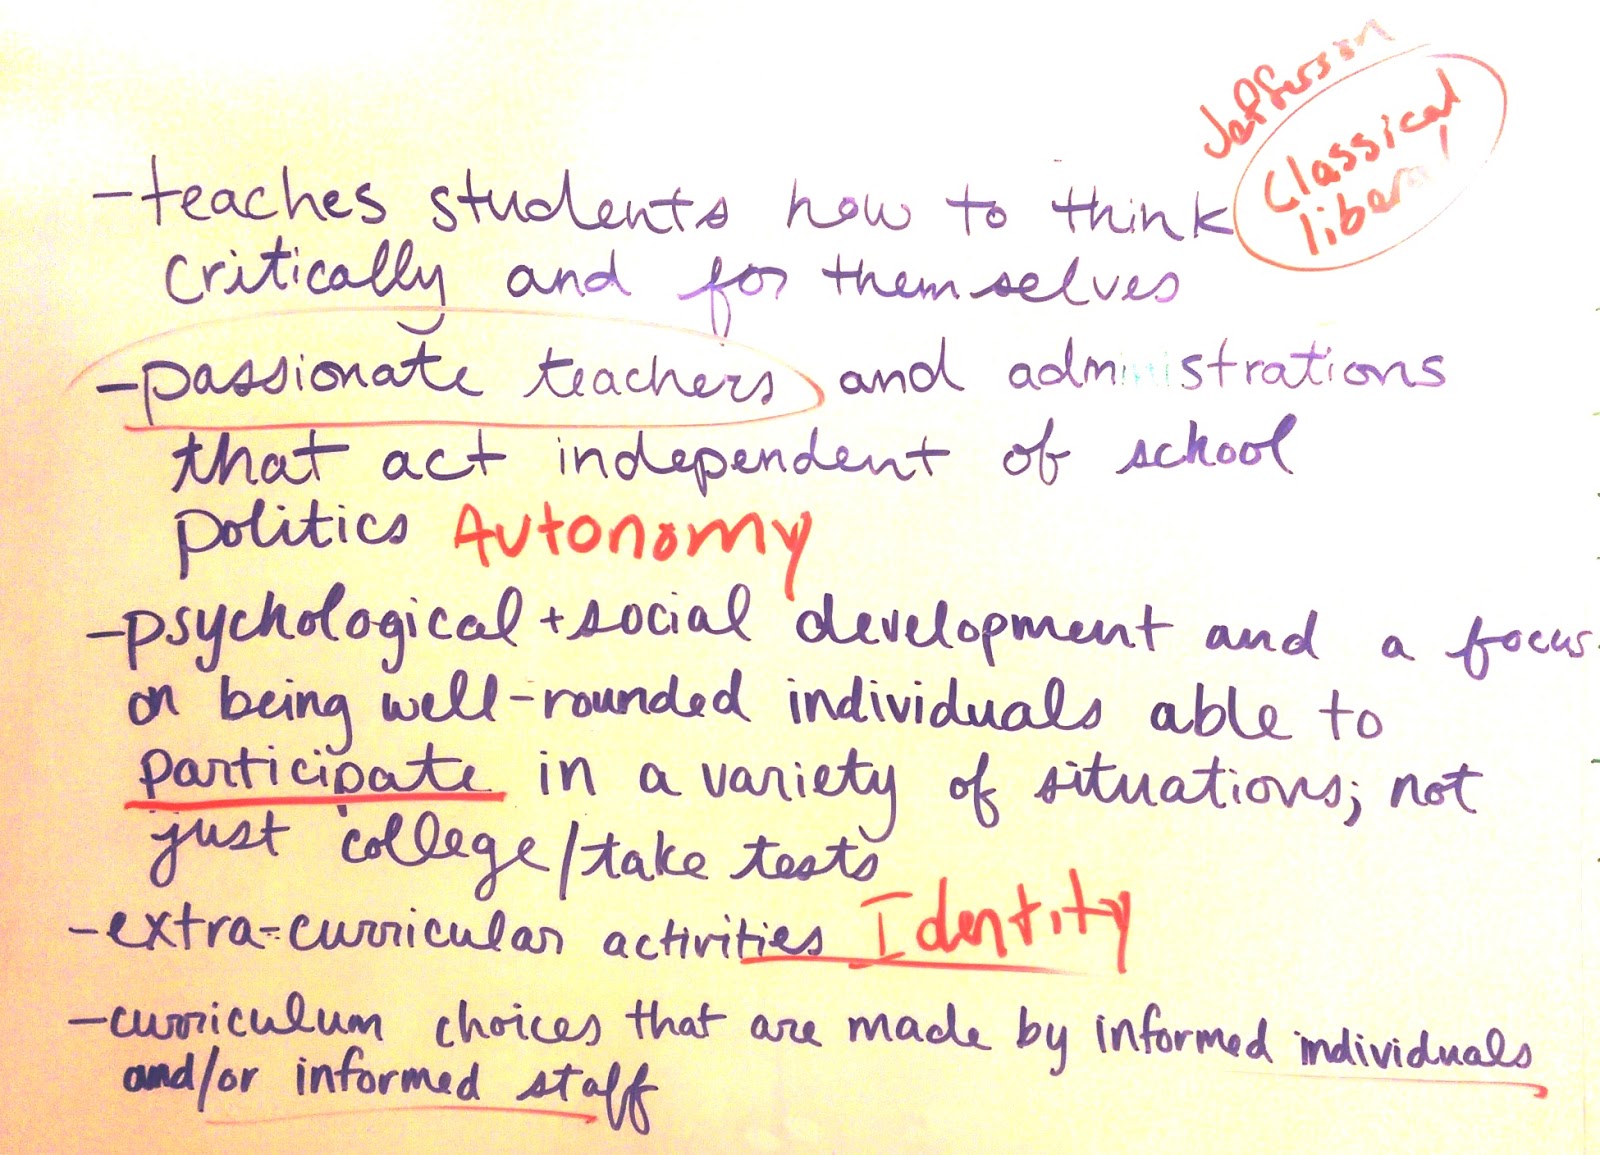 Jefferson
Classical
liberal
- teaches students how to think
critically and for themselves
- passionate teachers and administrations
that act independent of school
politics Autonomy
- psychological + social development and a focus
on being well-rounded individuals able to
participate in a variety of situations; not
just college/take tests
- extra-curricular activities Identity
- curriculum choices that are made by informed individuals
and/or informed staff